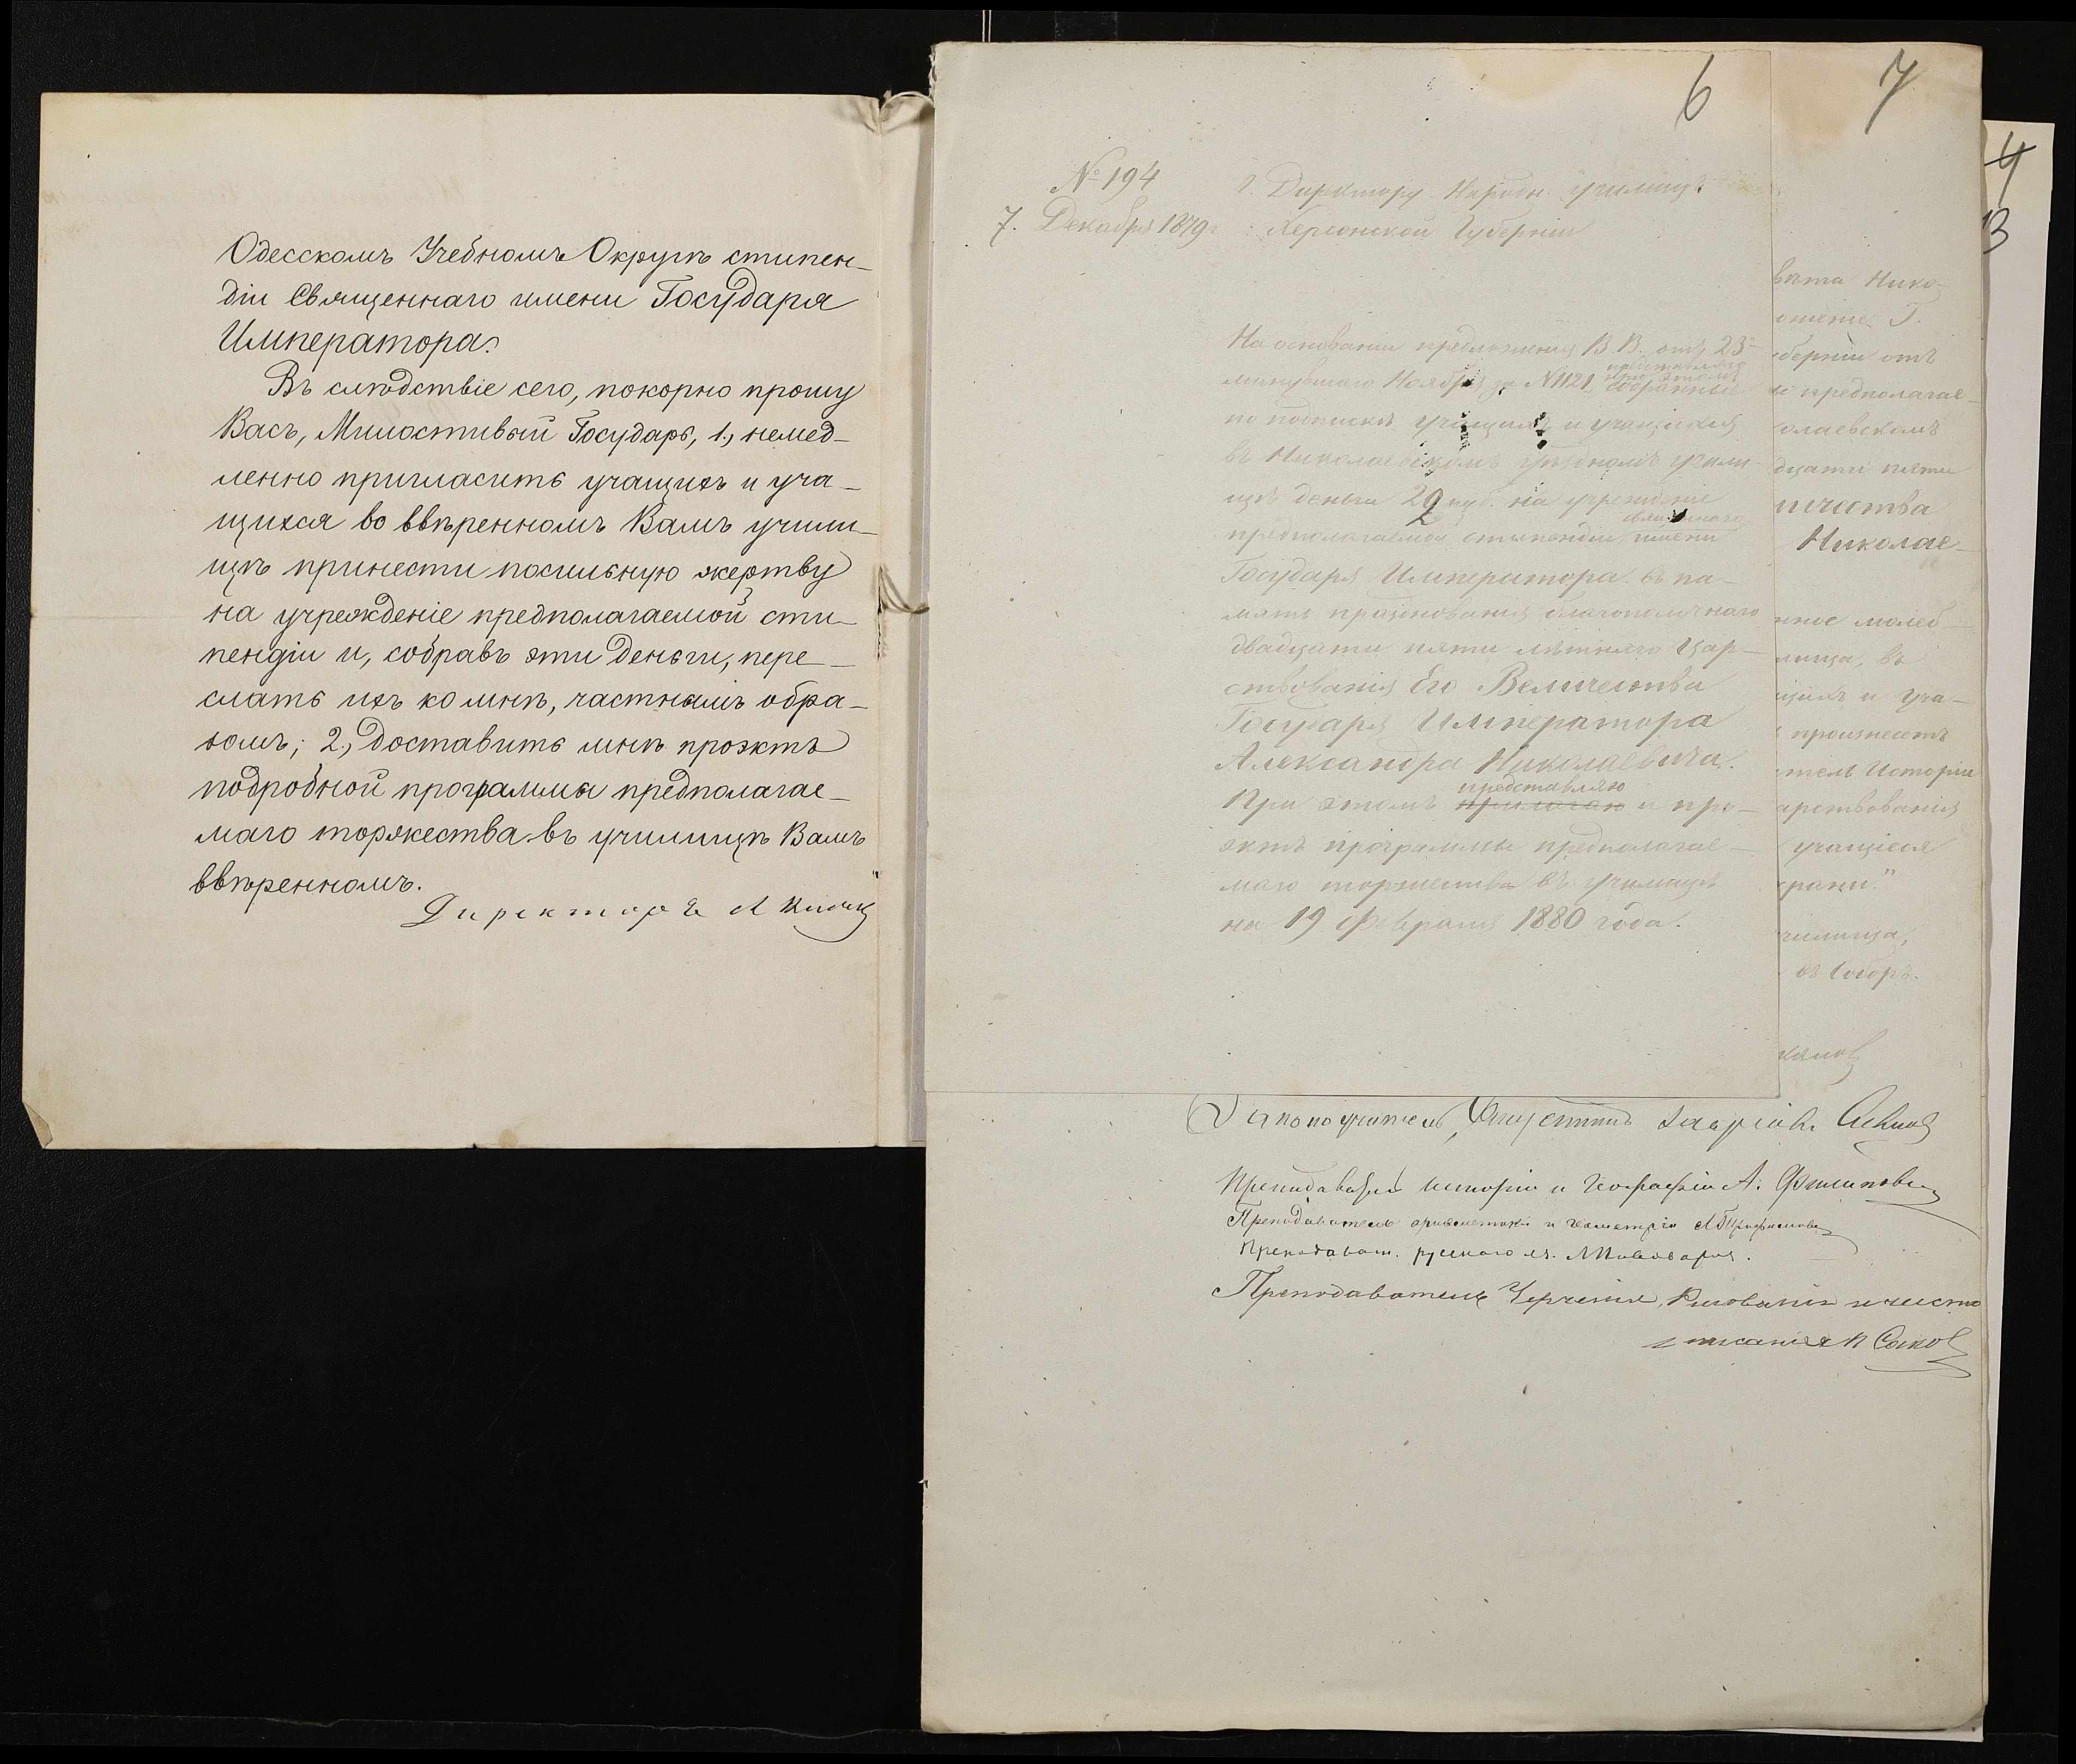 Одесскомъ Учебномъ Округѣ стипен-
діи Священнаго имени Государя
Императора.
Въ слѣдствіе сего, покорно прошу
Васъ, Милостивый Государь, 1., немед-
ленно пригласить учащихъ и уча-
щихся во ввѣренномъ Вамъ учили-
щѣ принести посильную жертву
на учрежденіе предполагаемой сти-
пендіи и, собравъ эти деньги, пере-
слать ихъ ко мнѣ, частнымъ обра-
зомъ; 2., доставить мнѣ проэктъ
подробной программы предполагае-
маго торжества въ училищѣ Вамъ
ввѣренномъ.
Директоръ
6
№ 194
7. Декабря 1879 г.
Г. Директору Народн. училищъ
Херсонской Губерніи
На основаніи предложенія В. В. отъ 23
минувшаго Ноября за №1121, представляю
при этомъ собранныя
по подпискѣ учащихъ и учащихся
въ Николаевскомъ уѣздномъ учили-
щѣ деньги 29 руб. на учрежденіе
предполагаемой стипендіи священнаго имени
Государя Императора въ па-
мять празднованія благополучнаго
двадцати пяти лѣтняго Цар-
ствованія Его Величества
Государя Императора
Александра Николаевича.
При этомъ прилагаю представляю и про-
эктъ программы предполагае-
маго торжества въ училищѣ
на 19 Февраля 1880 года.
7
вѣта Нико-
Г.
берніи отъ
предполагае-
олаевскомъ
дцати пяти
ичества
Николае-
нное молеб-
лища, въ
щихъ и уча-
произнесетъ
тель Исторіи
арствованія
учащіеся
храни."
чилища,
въ Соборъ.
Законоучитель,
Преподаватель исторіи и Географіи А. Филиповъ
Преподаватель ариѳметики и геометріи
Преподават. русскаго яз.
Преподаватель Черченія, Рисованія и чисто
писанія
4
3